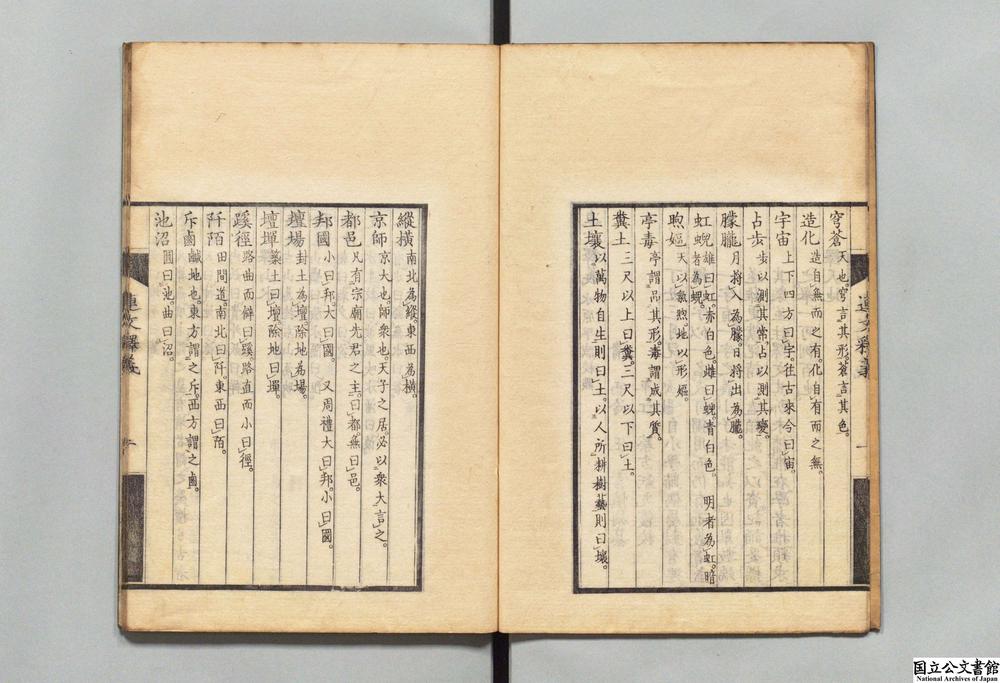 穹蒼 天也。穹言其形。蒼言其色。
造化 造自無而之有。化自有而之無。
宇宙 上下四方曰宇。往古來今曰宙。
占步 步以測其常。占以測其變。
朦朧 月將入為朦。日將出為朧。
虹蜺 雄曰虹。赤白色。雌曰蜺。青白色。 明者為虹。暗者為蜺。
煦嫗 天以氣煦。地以形嫗。
亭毒 亭謂品其形。毒謂成其質。
糞土 三尺以上曰糞。三尺以下曰土。
土壤 以萬物自生則曰土。以人所耕樹藝則曰壤。
連文釋義
一
縱橫 南北為縱。東西為橫。
京師 京大也。師衆也。天子之居必以衆大言之。
都邑 凡有宗廟先君之主。曰都。無曰邑。
邦國 小曰邦。大曰國。 又周禮大曰邦。小曰國。
壇場 封土為壇。除地為場。
壇墠 築土曰壇。除地曰墠。
蹊徑 路曲而僻曰蹊。路直而小曰徑。
阡陌 田間道。南北曰阡。東西曰陌。
斥鹵 鹹地也。東方謂之斥。西方謂之鹵。
池沼 圓曰池。曲曰沼。
連文釋義
国立公文書館
National Archives of Japan